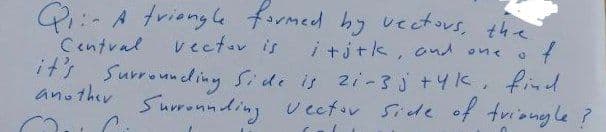 Q1:- A triangle formed by vectors, the
Central vector is i+j+k, and one of
it's Surrounding Side is 2i-3j+4k, find
another Surronnding vector side of triangle?